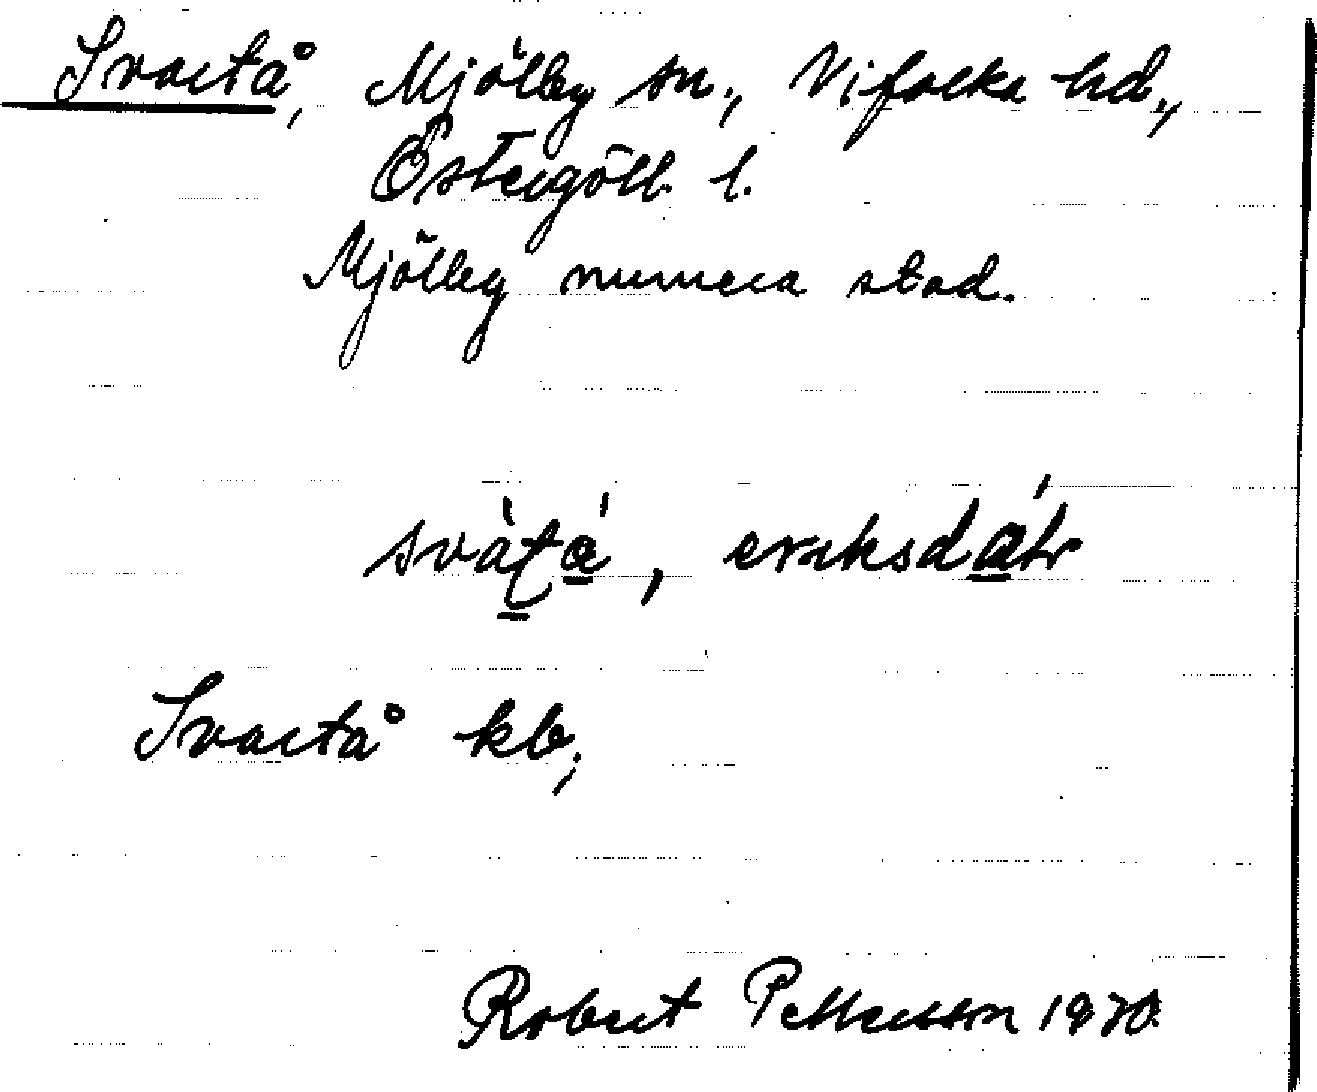 Svartå, Mjölby sn., Vifolka hd.,
Östergötl. l.
Mjölby numera stad.
svàtá̱,
Svartå kb,
Robert Pettersson 1970.